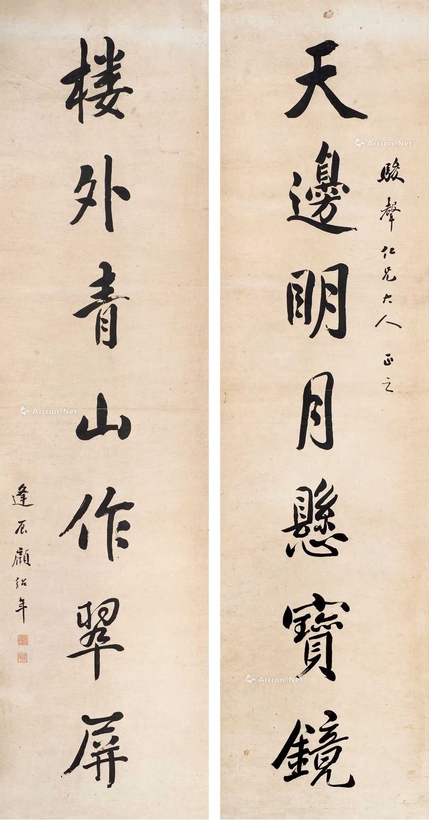 天邊明月懸寶鏡
駿聲仁兄大人 正之
楼外青山作翠屏
逢辰顧紹年
Artron.Net
Artron.Net
Artron.Net